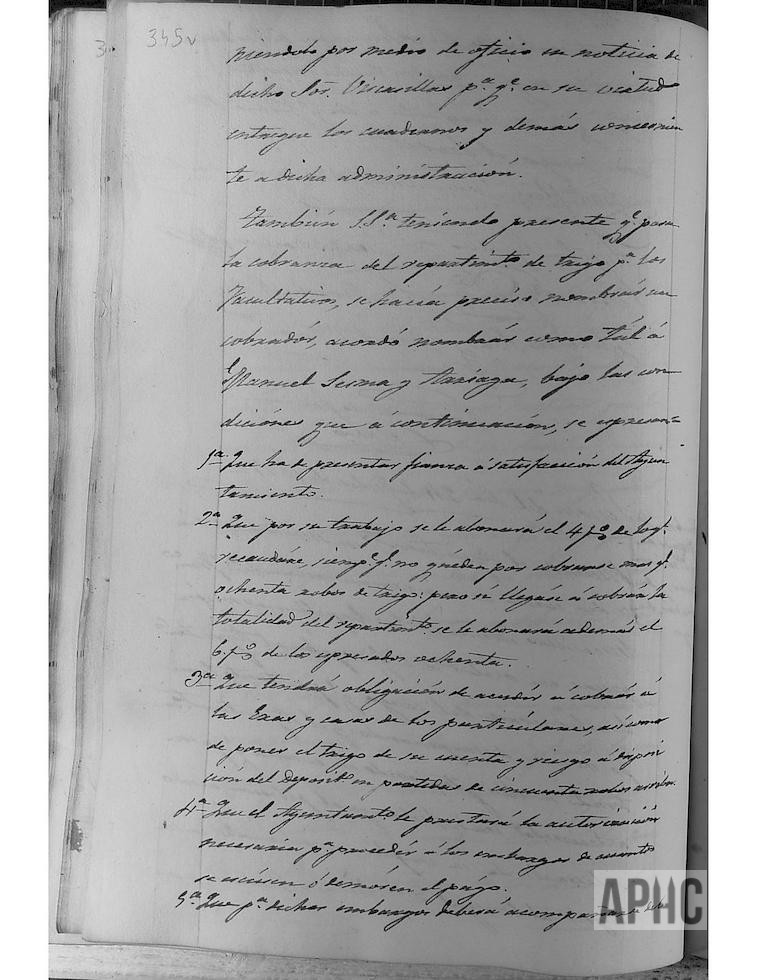 345v
niendolo por medio de oficio en noticia de
dicho Sor. Vicasillas pa. qe. en su virtud
entregue los cuadernos y demás concernien
te a dicha administración.
También S.Sa. teniendo presente qe. para
la cobranza del repartimto. de trigo pa. los
Facultativos, se hacía preciso nombrár un
cobradór, acordó nombrár como tál á
Manuel Sesma y Arriaga, bajo las con
diciones que á continuación, se espresan=
1a. Que ha de presentar fianza á satisfacción del Ayun
tamiento.
2a. Que por su trabajo se le abonará el 4 p% de lo qe.
recaudáre, siempe. qe. no quéden por cobrarse mas qe.
ochenta robos de trigo: pero si llegáse á cobrár la
totalidad del repartimto. se le abonará además el
6. p% de los espresados ochenta.
3a. Que tendrá obligación de acudír á cobrár á
las Eras y casas de los particuláres, así como
de poner el trigo de su cuenta y riesgo á dispoci
ción del Deposito. en partidas de cincuenta robos arriba.
4a. Que el Ayuntamto. le prestará la autorización
necesaria pa. procedér á los embargos de cuantos
se escúsen ó demóren el págo.
5a. Que pa. dichos embargos deberá acompañarse de
APHC